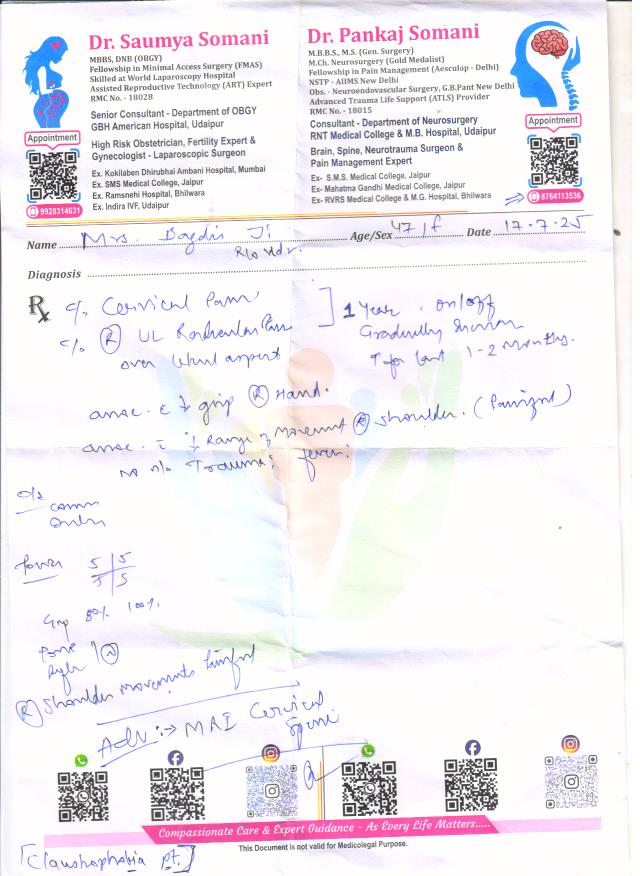 Dr. Saumya Somani
MBBS, DNB (OBGY)
Fellowship in Minimal Access Surgery (FMAS)
Skilled at World Laparoscopy Hospital
Assisted Reproductive Technology (ART) Expert
RMC No. - 18028
Senior Consultant - Department of OBGY
GBH American Hospital, Udaipur
High Risk Obstetrician, Fertility Expert &
Gynecologist - Laparoscopic Surgeon
Ex. Kokilaben Dhirubhai Ambani Hospital, Mumbai
Ex. SMS Medical College, Jaipur
Ex. Ramsnehi Hospital, Bhilwara
Ex. Indira IVF, Udaipur
Appointment
9928314631
Dr. Pankaj Somani
M.B.B.S., M.S. (Gen. Surgery)
M.Ch. Neurosurgery (Gold Medalist)
Fellowship in Pain Management (Aesculap - Delhi)
NSTP - AIIMS New Delhi
Obs. - Neuroendovascular Surgery, G.B.Pant New Delhi
Advanced Trauma Life Support (ATLS) Provider
RMC No. - 18015
Consultant - Department of Neurosurgery
RNT Medical College & M.B. Hospital, Udaipur
Brain, Spine, Neurotrauma Surgeon &
Pain Management Expert
Ex- S.M.S. Medical College, Jaipur
Ex- Mahatma Gandhi Medical College, Jaipur
Ex- RVRS Medical College & M.G. Hospital, Bhilwara
Appointment
8764113536
Name Mrs. Ji Age/Sex 47/f Date 17-7-25
R/o
Diagnosis
Rx c/o Cervical Pain 1 Year . on/off
c/o R UL Pain Gradually
over aspect for last 1-2 months.
assoc. c ↓ grip R Hand.
assoc. c ↓ Range of movement R Shoulder. (Painful)
no h/o Trauma / fever.
o/e
Power 5 5
5 5
Grip 80% 100%
Tone N
R Shoulder movements Painful
Adv :-> MRI Cervical
Spine
Compassionate Care & Expert Guidance - As Every Life Matters.....
This Document is not valid for Medicolegal Purpose.
[Claustrophobia pt.]